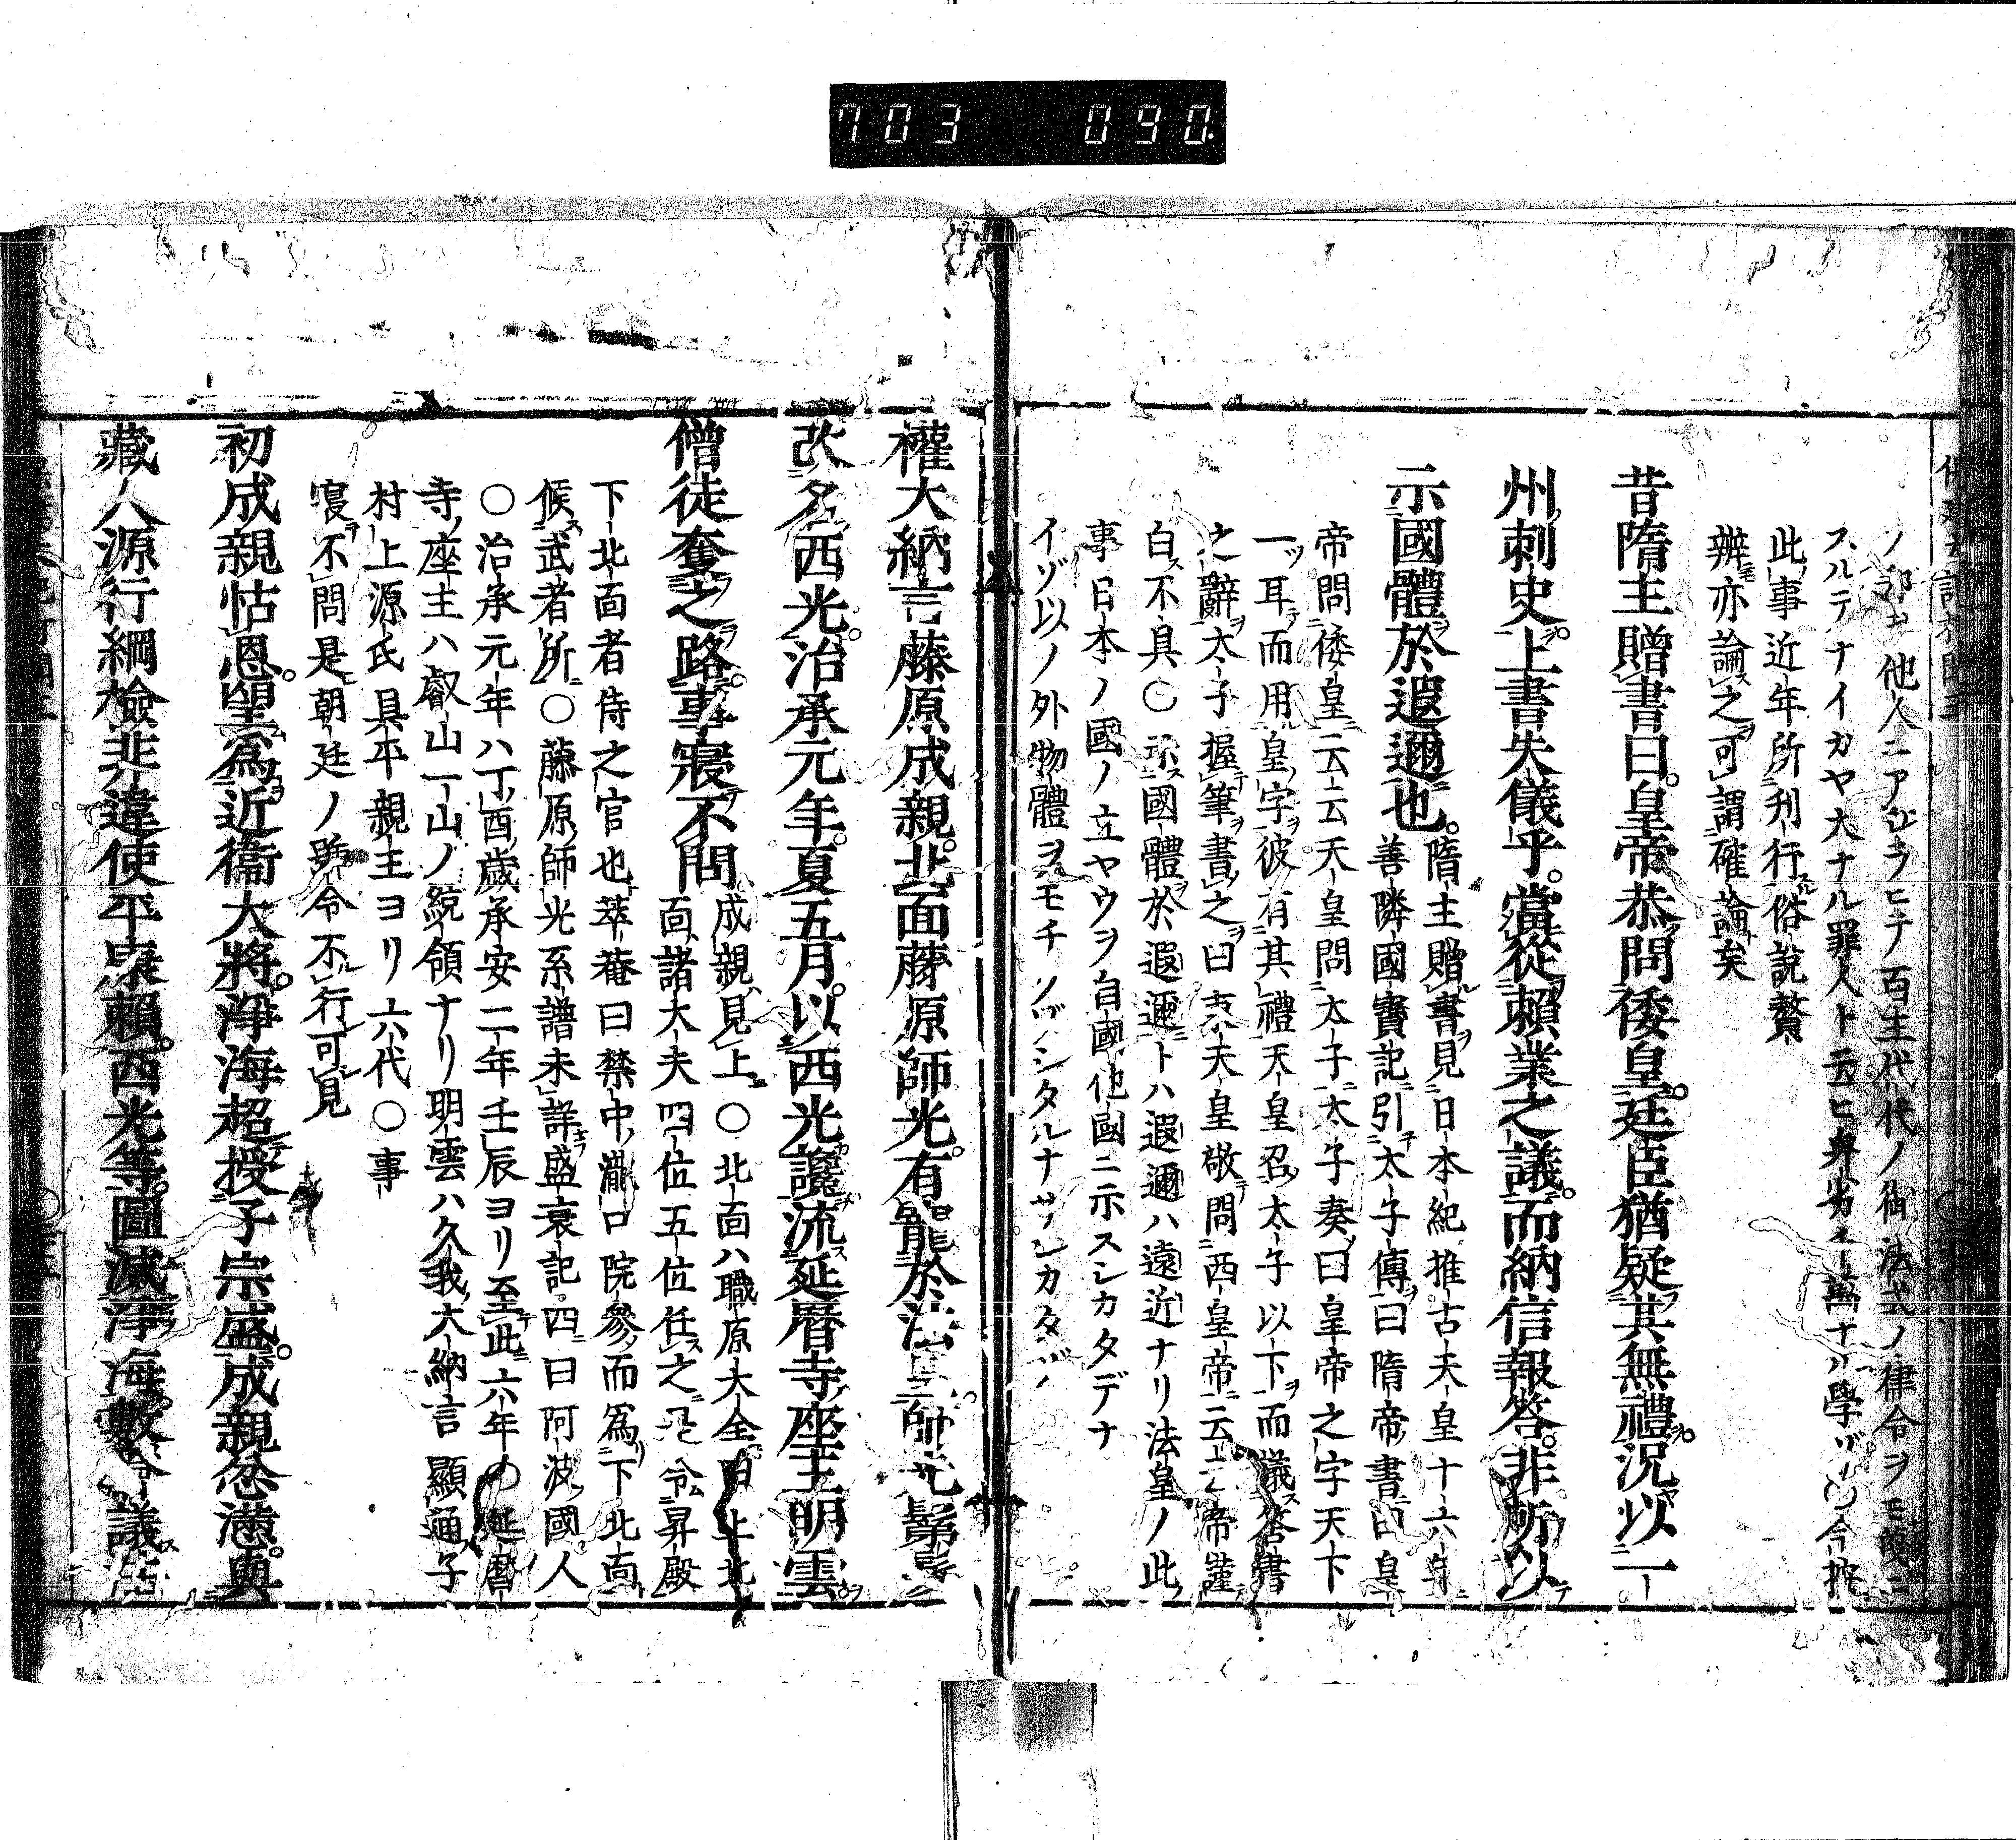 703 090
他人ニアヒテ百王代代ノ御法式ノ律令ヲモ
スルテナイカヤ大ナル罪人ト云ヒ
此事近年所刋行俗説贅
辨亦論之可謂確論矣
昔隋主贈書曰。皇帝恭問倭皇。廷臣猶疑其無禮。況以一
州刺史。上書失儀乎。當從賴業之議。而納信報答。非所以
示國體於遐邇也。隋主贈書見日本紀推古天皇十六年
善隣國寶記引太子傳曰隋帝書曰皇
帝問倭皇云云天皇問太子太子奏曰皇帝之字天下
一耳而用皇字彼有其禮天皇召太子以下而議答書
之辭太子握筆書之曰東天皇敬問西皇帝云云帝謹
白不具〇示國體於遐邇トハ遐邇ハ遠近ナリ法皇ノ此
事日本ノ國ノ立ヤウヲ自國他國ニ示スシカタデナ
イゾ以ノ外物體ヲモチ
權大納言藤原成親。北面藤原師光。有寵於法皇。師光鬀髮
改名西光。治承元年。夏五月。以西光讒流延曆寺座主明雲。
僧徒奪之路。事寢不問
成親見上〇北面ハ職原大全曰上北
面諸大夫四位五位任之 令昇殿
下北面者侍之官也萃菴曰禁中瀧口院參而為下北面
候武者所〇藤原師光系譜未詳盛衰記四曰阿波國人
〇治承元年ハ丁酉歲承安二年壬辰ヨリ至此六年〇延曆
寺座主ハ叡山一山ノ統領ナリ明雲ハ久我大納言顯通子
村上源氏具平親王ヨリ六代〇事
寢不問是朝廷ノ 令不行可見
初成親怙恩。望為近衞大將。淨海超授子宗盛。成親忿懣。與
藏人源行綱檢非違使平康賴。西光等。圖滅淨海。數令議